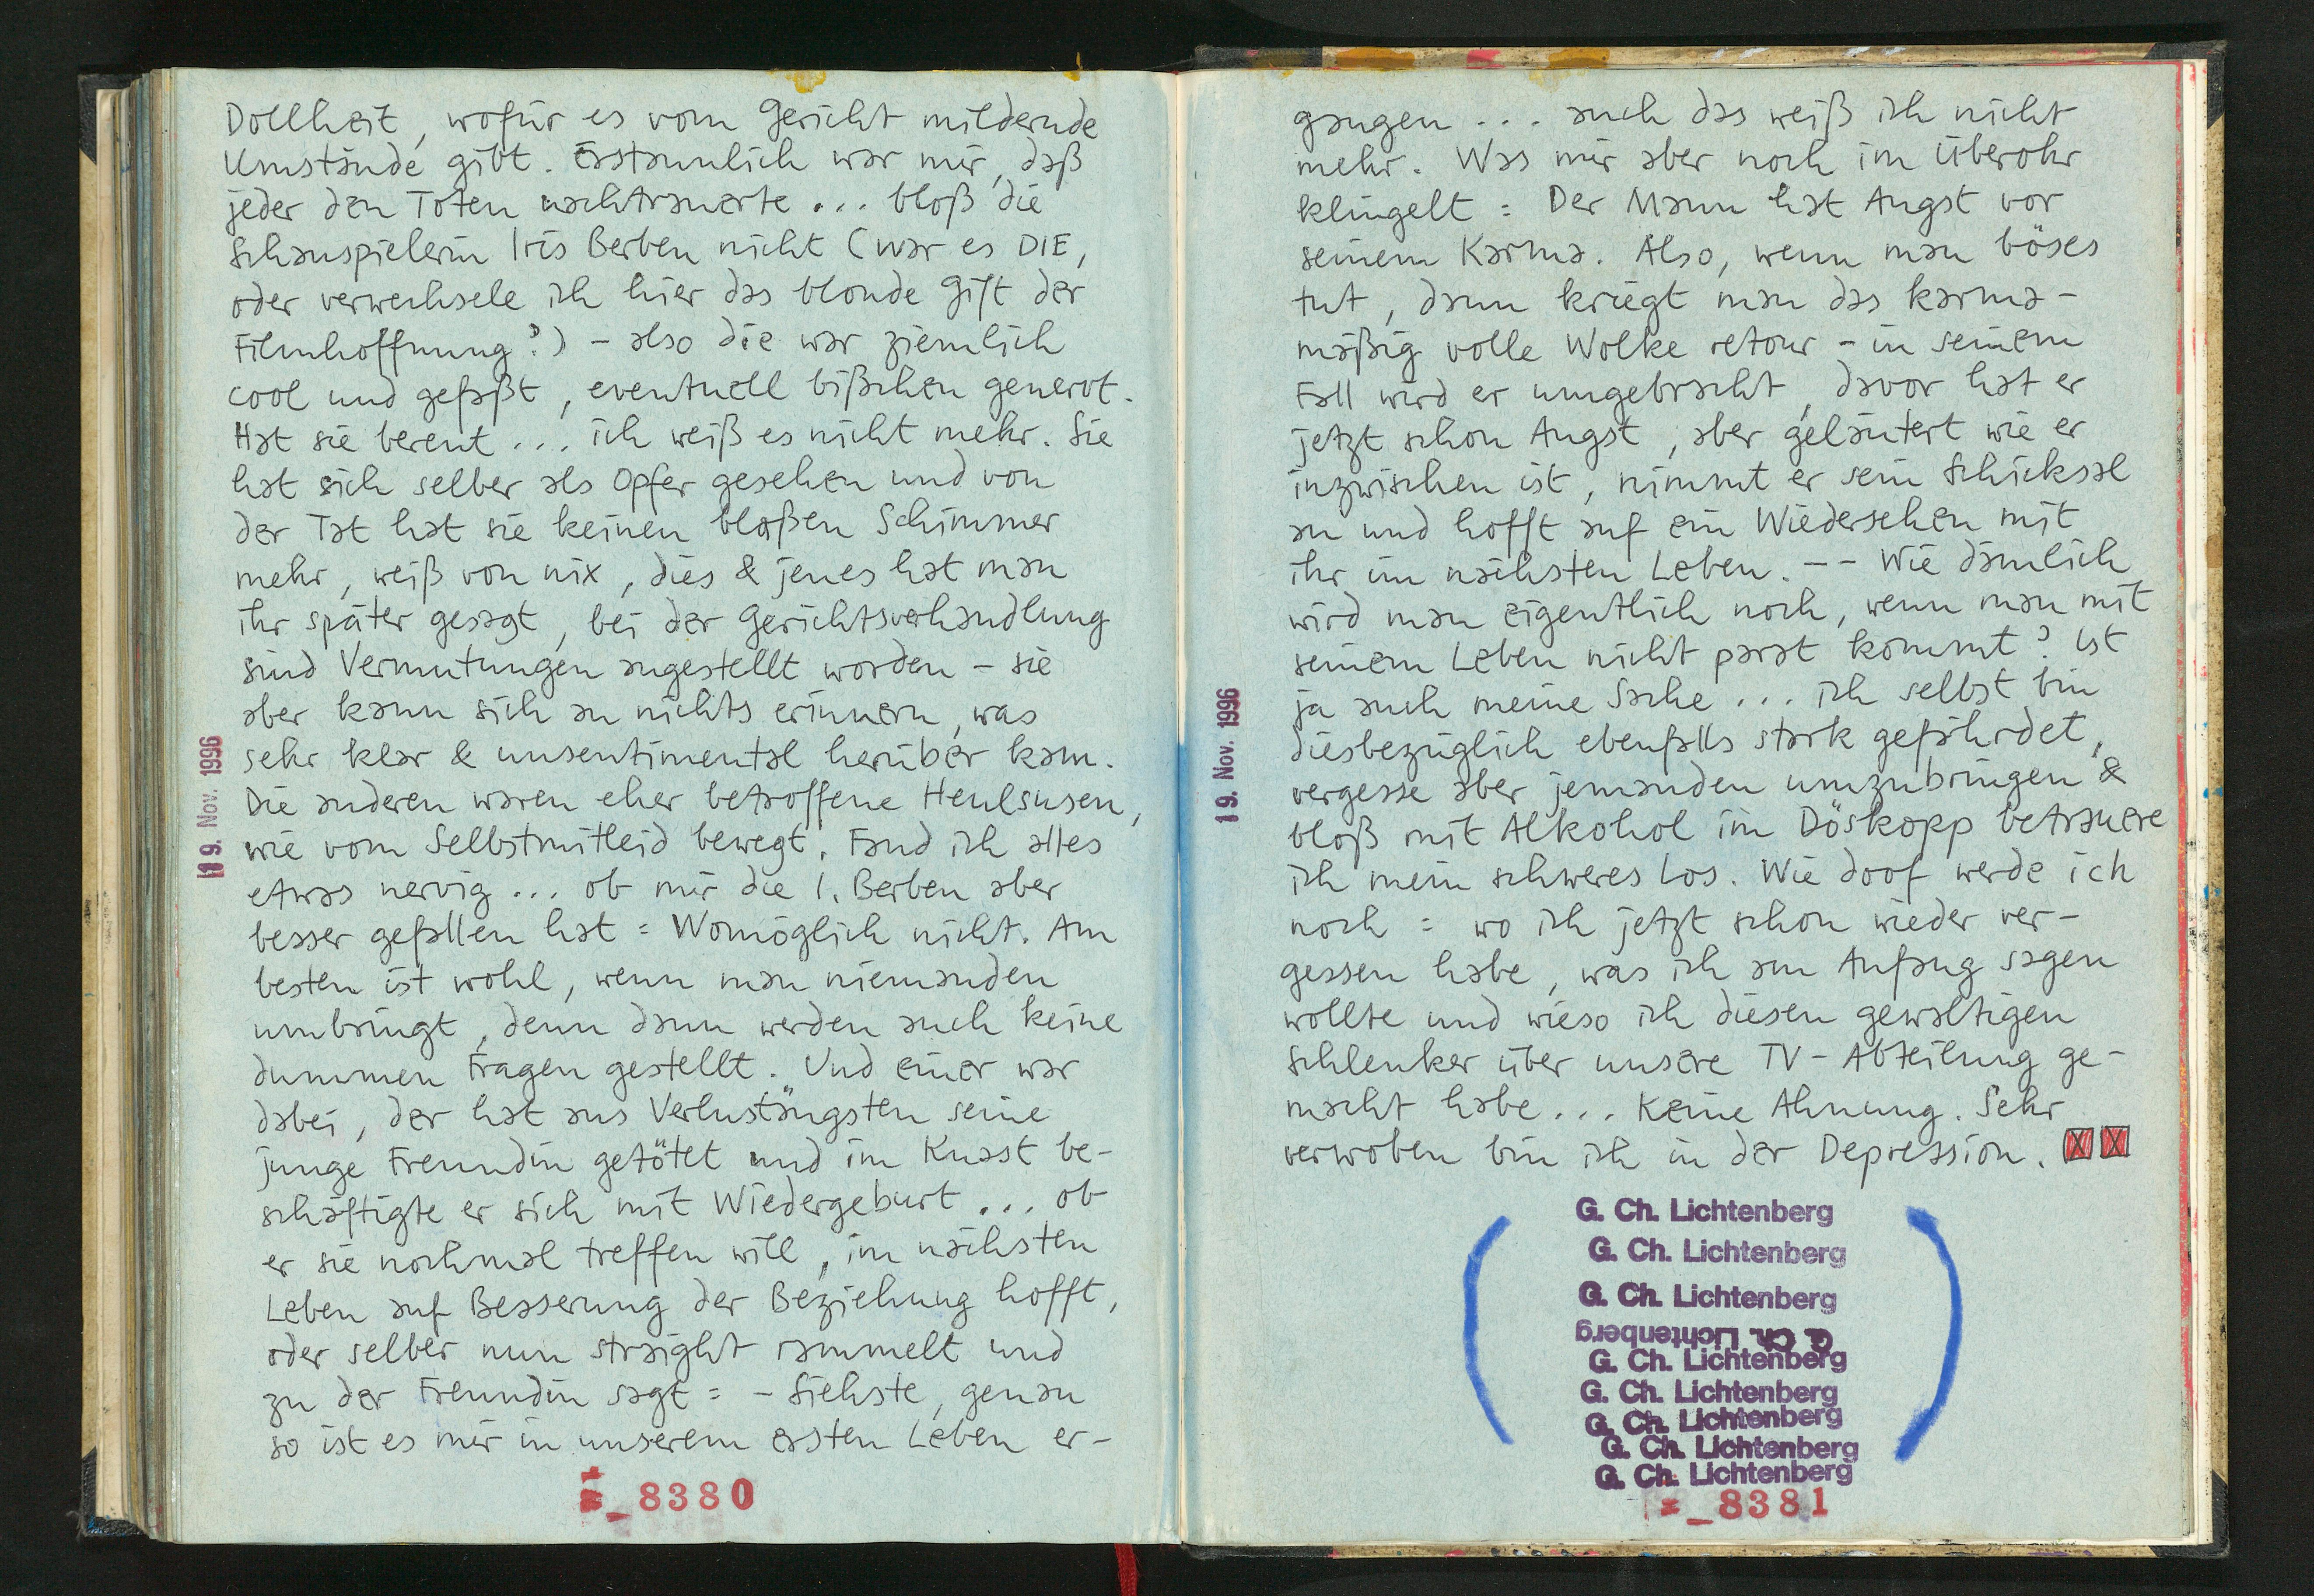 Dollheit, wofür es vom Gericht mildernde
Umstände gibt. Erstaunlich war mir, daß
jeder den Toten nachtrauerte ... bloß die
Schauspielerin Iris Berben nicht (war es DIE,
oder verwechsele ich hier das blonde Gift der
Filmhoffnung?) – also die war ziemlich
cool und gefaßt, eventuell bißchen genervt.
Hat sie bereut ... ich weiß es nicht mehr. Sie
hat sich selber als Opfer gesehen und von
der Tat hat sie keinen bloßen Schimmer
mehr, weiß von nix, dies & jenes hat man
ihr später gesagt, bei der Gerichtsverhandlung
sind Vermutungen angestellt worden – sie
aber kann sich an nichts erinnern, was
sehr klar & unsentimental herüber kam.
Die anderen waren eher betroffene Heulsusen,
wie vom Selbstmitleid bewegt. Fand ich alles
etwas nervig ... ob mir die I. Berben aber
besser gefallen hat = Womöglich nicht. Am
besten ist wohl, wenn man niemanden
umbringt, denn dann werden auch keine
dummen Fragen gestellt. Und einer war
dabei, der hat aus Verlustängsten seine
junge Freundin getötet und im Knast be-
schäftigte er sich mit Wiedergeburt ... ob
er sie nochmal treffen will, im nächsten
Leben auf Besserung der Beziehung hofft,
oder selber nun straight rammelt und
zu der Freundin sagt = – Siehste, genau
so ist es mir in unserem ersten Leben er-
19. Nov. 1996
_8380
gangen ... auch das weiß ich nicht
mehr. Was mir aber noch im Überohr
klingelt = Der Mann hat Angst vor
seinem Karma. Also, wenn man böses
tut, dann kriegt man das karma-
mäßig volle Wolke retour – in seinem
Fall wird er umgebracht, davor hat er
jetzt schon Angst, aber geläutert wie er
inzwischen ist, nimmt er sein Schicksal
an und hofft auf ein Wiedersehen mit
ihr im nächsten Leben. – – Wie dämlich
wird man eigentlich noch, wenn man mit
seinem Leben nicht parat kommt? Ist
ja auch meine Sache ... ich selbst bin
diesbezüglich ebenfalls stark gefährdet,
vergesse aber jemanden umzubringen &
bloß mit Alkohol im Döskopp betrauere
ich mein schweres Los. Wie doof werde ich
noch = wo ich jetzt schon wieder ver-
gessen habe, was ich am Anfang sagen
wollte und wieso ich diesen gewaltigen
Schlenker über unsere TV-Abteilung ge-
macht habe ... Keine Ahnung. Sehr
verwoben bin ich in der Depression. X X
19. Nov. 1996
G. Ch. Lichtenberg
G. Ch. Lichtenberg
G. Ch. Lichtenberg
G. Ch. Lichtenberg
G. Ch. Lichtenberg
G. Ch. Lichtenberg
G. Ch. Lichtenberg
G. Ch. Lichtenberg
G. Ch. Lichtenberg
=_8381